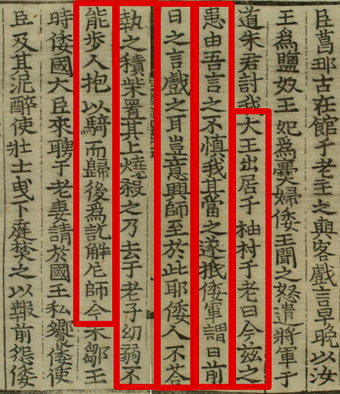 臣葛那古在館于老主之與客戲言早晚以汝
王爲鹽奴王妃爲爨婦倭王聞之怒遣將軍于
道朱君討我大王出居于柚村于老曰今玆之
患由吾言之不愼我其當之遂抵倭軍謂曰前
日之言戲之耳豈意興師至於此耶倭人不答
執之積柴置其上燒殺之乃去于老子幼弱不
能步人抱以騎而歸後爲訖解尼師今未鄒王
時倭國大臣來聘于老妻請於國王私饗倭使
臣及其泥醉使壯士曳下庭焚之以報前怨倭